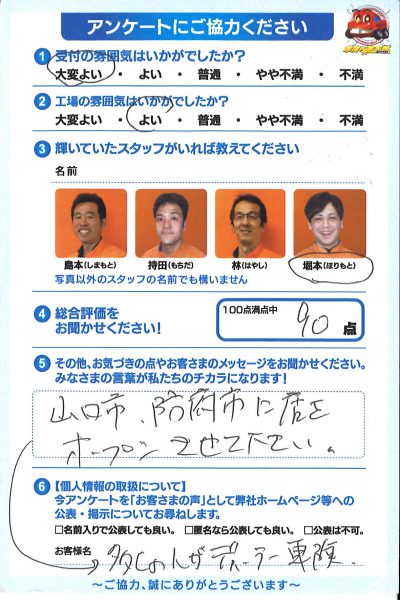 アンケートにご協力ください
1 受付の雰囲気はいかがでしたか?
大変よい ・ よい ・ 普通 ・ やや不満 ・ 不満
2 工場の雰囲気はいかがでしたか?
大変よい ・ よい ・ 普通 ・ やや不満 ・ 不満
3 輝いていたスタッフがいれば教えてください
名前
島本(しまもと) 持田(もちだ) 林(はやし) 堀本(ほりもと)
写真以外のスタッフの名前でも構いません
4 総合評価をお聞かせください!
100点満点中 90 点
5 その他、お気づきの点やお客さまのメッセージをお聞かせください。
みなさまの言葉が私たちのチカラになります!
山口市、防府市に店を
オープンさせて下さい。
6 【個人情報の取扱について】
今アンケートを「お客さまの声」として弊社ホームページ等への
公表・掲示についてお尋ねします。
□名前入りで公表しても良い。 □匿名なら公表しても良い。 □公表は不可。
お客様名
ディーラー車検
〜ご協力、誠にありがとうございます〜